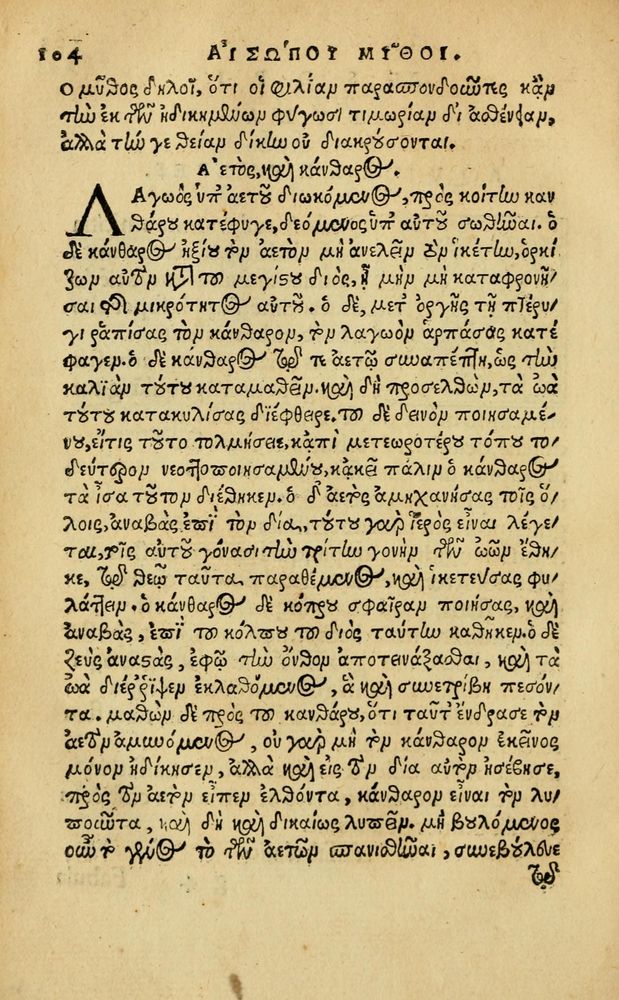 104 ΑΙΣΩΠΟΥ ΜΥΘΟΙ.
Ο μῦθος δηλοῖ, ὅτι οἱ φιλίαν παρασπονδοῦντες κἂν
τὴν ἐκ τῶν ἠδικημένων φύγωσι τιμωρίαν δι' ἀσθένειαν,
ἀλλὰ τήν γε θείαν δίκην οὐ διακρούσονται.
Ἀετὸς, καὶ κάνθαρος.
Λαγωὸς ὑπ' ἀετοῦ διωκόμενος, πρὸς κοίτην καν
θάρου κατέφυγε, δεόμενος ὑπ' αὐτοῦ σωθῆναι. ὁ
δὲ κάνθαρος ἠξίου τὸν ἀετὸν μὴ ἀνελεῖν τὸν ἱκέτην, ὁρκί
ζων αὐτὸν κατὰ τοῦ μεγίστου διὸς, ἦ μὴν μὴ καταφρονῆ/
σαι τῆς μικρότητος αὐτοῦ. ὁ δὲ, μετ' ὀργῆς τῇ πτέρυ/
γι ῥαπίσας τὸν κάνθαρον, τὸν λαγωὸν ἁρπάσας κατέ
φαγεν. ὁ δὲ κάνθαρος τῷ τε ἀετῷ συναπέπτη, ὡς τὴν
καλιὰν τούτου καταμαθεῖν. καὶ δὴ προσελθὼν, τὰ ὠὰ
τούτου κατακυλίσας διέφθειρε. τοῦ δὲ δεινὸν ποιησαμέ/
νου, εἴ τις τοῦτο τολμήσειε, κἀπὶ μετεωροτέρου τόπου τὸ/
δεύτερον νεοττοποιησαμένου, κἀκεῖ πάλιν ὁ κάνθαρος
τὰ ἶσα τοῦτον διέθηκεν. ὁ δ' ἀετὸς ἀμηχανήσας τοῖς ὅ/
λοις, ἀναβὰς ἐπὶ τὸν δία, τούτου γὰρ ἱερὸς εἶναι λέγε/
ται, τοῖς αὐτοῦ γόνασι τὴν τρίτην γονὴν τῶν ὠῶν ἔθη/
κε, τῷ θεῷ ταῦτα παραθέμενος, καὶ ἱκετεύσας φυ/
λάττειν. ὁ κάνθαρος δὲ κόπρου σφαῖραν ποιήσας, καὶ
ἀναβὰς, ἐπὶ τοῦ κόλπου τοῦ διὸς ταύτην καθῆκεν. ὁ δὲ
ζεὺς ἀναστὰς, ἐφ' ᾧ τὴν ὄνθον ἀποτινάξασθαι, καὶ τὰ
ὠὰ διέῤῥιψεν ἐκλαθόμενος, ἃ καὶ συνετρίβη πεσόν/
τα. μαθὼν δὲ πρὸς τοῦ κανθάρου, ὅτι ταῦτ' ἔδρασε τὸν
ἀετὸν ἀμυνόμενος, οὐ γὰρ μὴ τὸν κάνθαρον ἐκεῖνος
μόνον ἠδίκησεν, ἀλλὰ καὶ εἰς τὸν δία αὐτὸν ἠσέβησε,
πρὸς τὸν ἀετὸν εἶπεν ἐλθόντα, κάνθαρον εἶναι τὸν λυ/
ποῦντα, καὶ δὴ καὶ δικαίως λυπεῖν. μὴ βουλόμενος
οὖν τὸ γένος τὸ τῶν ἀετῶν σπανισθῆναι, συνεβούλευε
τῷ